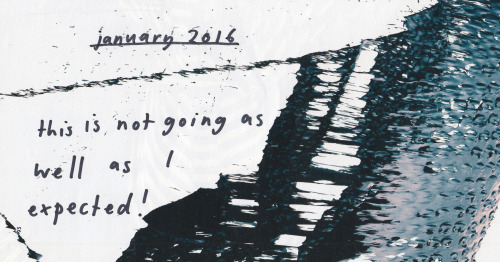 january 2016
this is not going as
well as I
expected!